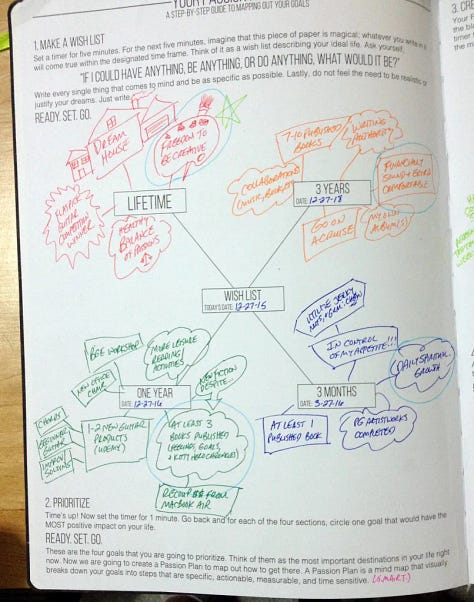 YOUR PASS
A STEP-BY-STEP GUIDE TO MAPPING OUT YOUR GOALS
1. MAKE A WISH LIST
Set a timer for five minutes. For the next five minutes, imagine that this piece of paper is magical; whatever you write in it
will come true within the designated time frame. Think of it as a wish list describing your ideal life. Ask yourself,
"IF I COULD HAVE ANYTHING, BE ANYTHING, OR DO ANYTHING, WHAT WOULD IT BE?"
Write every single thing that comes to mind and be as specific as possible. Lastly, do not feel the need to be realistic or
justify your dreams. Just write.
READY. SET. GO.
DREAM
HOUSE
FREEDOM TO
BE CREATIVE
LIFETIME
GUITAR
COMPETITION
WINNER
HEALTHY
BALANCE
OF PASSIONS
7-10 PUBLISHED
BOOKS
WRITING
AUTHORITY
COLLABORATIONS
3 YEARS
DATE: 12-27-18
FINANCIALLY
SOUND + BEING
COMFORTABLE
GO ON
A CRUISE
MY OWN
ALBUM(S)
WISH LIST
TODAY'S DATE: 12-27-15
MORE LEISURE
READING/
ACTIVITIES
NEW OFFICE
CHAIR
NON FICTION
DESPITE...
ONE YEAR
DATE: 12-27-16
CHORDS
BEGINNER
GUITAR
IMPROV/
SOLOING
1-2 NEW GUITAR
PRODUCTS
(UDEMY)
AT LEAST 3
BOOKS PUBLISHED
FROM
MACBOOK AIR
IN CONTROL
OF MY APPETITE!!!
DAILY SPIRITUAL
GROWTH
3 MONTHS
DATE: 3-27-16
AT LEAST 1
PUBLISHED BOOK
PG ARTISTWORKS
COMPLETED
2. PRIORITIZE
Time's up! Now set the timer for 1 minute. Go back and for each of the four sections, circle one goal that would have the
MOST positive impact on your life.
READY. SET. GO.
These are the four goals that you are going to prioritize. Think of them as the most important destinations in your life right
now. Now we are going to create a Passion Plan to map out how to get there. A Passion Plan is a mind map that visually
breaks down your goals into steps that are specific, actionable, measurable, and time sensitive. (S.M.A.R.T.)